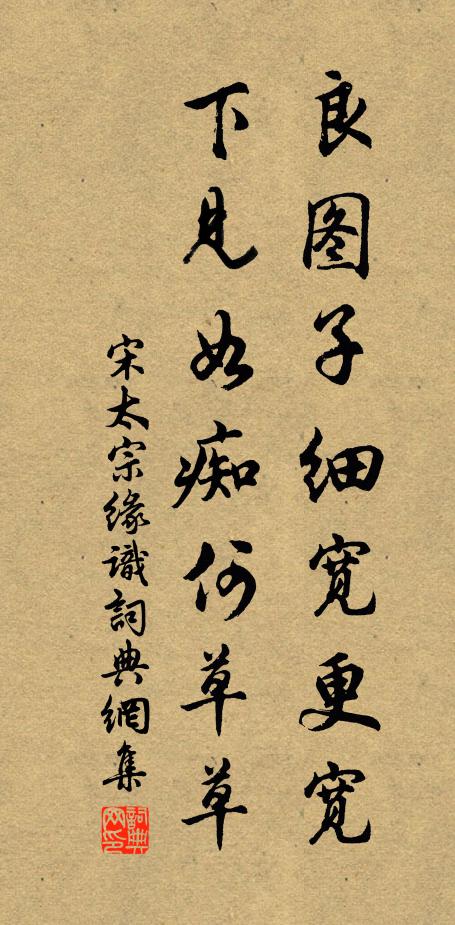 良图子细宽更宽
下见如痴何草草
宋太宗缘識詞典網集
詞典网印